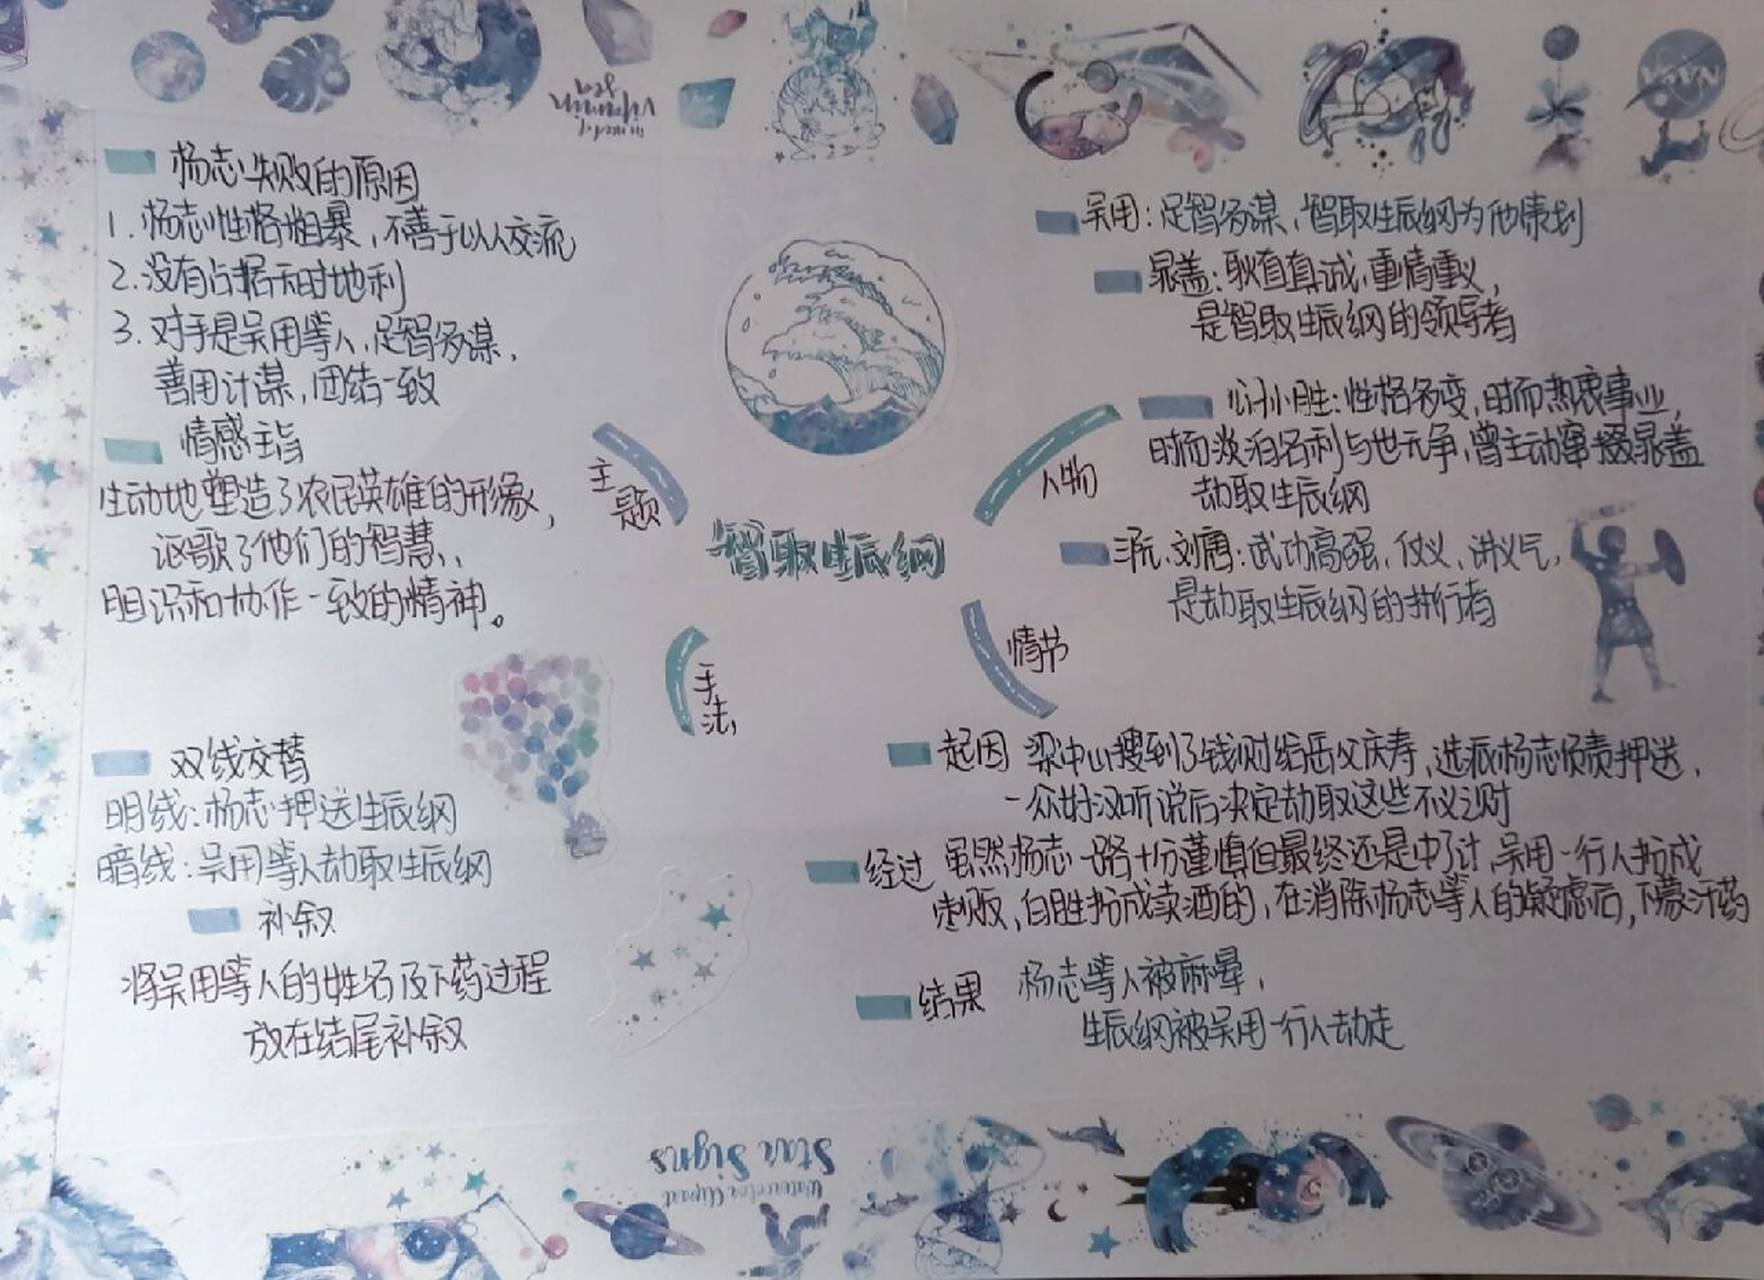 智取生辰纲
主题
杨志失败的原因
1.杨志性格粗暴，不善于以人交流
2.没有占据天时地利
3.对手是吴用等人，足智多谋，
善用计谋，团结一致
情感主旨
生动地塑造了农民英雄的形象，
讴歌了他们的智慧、
胆识和协作一致的精神。
手法
双线交替
明线：杨志押送生辰纲
暗线：吴用等人劫取生辰纲
补叙
将吴用等人的姓名及下药过程
放在结尾补叙
人物
吴用：足智多谋，智取生辰纲为他策划
晁盖：耿直真诚，重情重义，
是智取生辰纲的领导者
性格多变，时而热衷事业，
时而淡泊名利与世无争，曾主动撺掇晁盖
劫取生辰纲
三阮、刘唐：武功高强、仗义、讲义气，
是劫取生辰纲的执行者
情节
起因 梁中书搜到了钱财给岳父庆寿，选派杨志负责押送，
一众好汉听说后决定劫取这些不义之财
经过 虽然杨志一路十分谨慎但最终还是中了计，吴用一行人扮成
枣贩，白胜扮成卖酒的，在消除杨志等人的疑虑后，下蒙汗药
结果 杨志等人被麻晕，
生辰纲被吴用一行人劫走
in need of
vitamin
sea
NASA
Star Signs
Watercolor Clipart